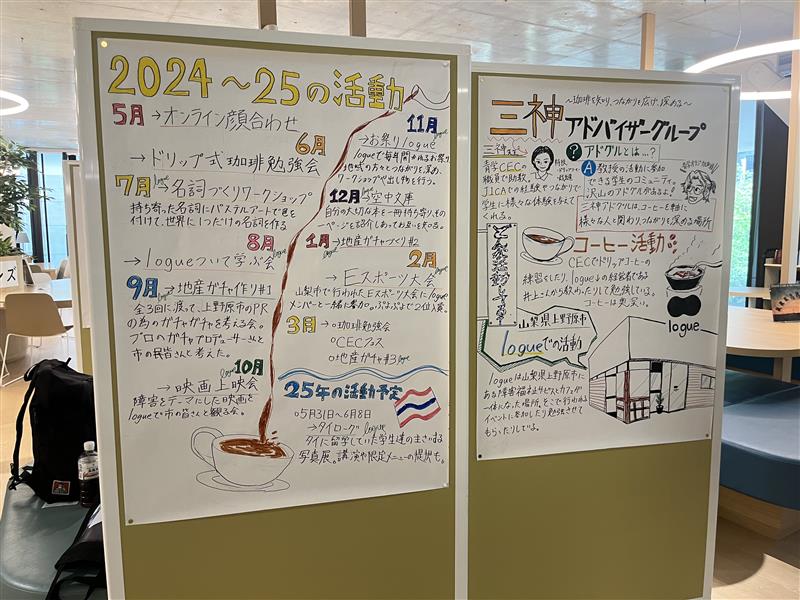 2024～25の活動
5月→オンライン顔合わせ
6月
→ドリップ式珈琲勉強会
7月→名詞づくりワークショップ
持ち寄った名詞にパステルアートで色を
付けて、世界に1つだけの名詞を作る
8月
→logueついて学ぶ会
9月→地産ガチャ作り#1
全3回に渡って、上野原市のPR
の為のガチャガチャを考える会。
プロのガチャプロデューサーさんと
市の民皆さんと考えた。
10月
→映画上映会
障害をテーマにした映画を
logueで市の皆さんと観る会。
11月
→お祭りlogue
logueで毎年開かれるお祭り
地域の方々とつながりを深め、
ワークショップや出し物を行う。
12月→空中文庫
自分の大切な本を一冊持ち寄り、その
一ページを紹介しあってお互いを知る。
1月→地産ガチャづくり#2
2月
→Eスポーツ大会
山梨市で行われたEスポーツ大会にlogue
メンバーと一緒に参加。ぷよぷよで2位入賞。
3月→○珈琲勉強会
○CECフェス
○地産ガチャ#3 logue
25年の活動予定
○5月31日～6月8日
→タイローグ logue
タイに留学していた学生達のまきする
写真展。講演や限定メニューの提供も。
～珈琲を知り、つながりを広げ、深める～
三神アドバイザーグループ
三神って
青学CECの
職員で助教。
JICAでの経験やつながりで
学生に様々な体験を与えて
くれる。
?アドグルとは…?
A教授の活動に参加
できる学生のコミュニティ
沢山のアドグルがあるよ♪
三神アドグルは、コーヒーを軸に
様々な人と関わりつながりを深める場所
コーヒー活動
CECでドリップコーヒーの
練習をしたり、logueの経営者である
井上さんから教わったりして勉強している。
コーヒーは奥深い。
logue
山梨県上野原市
logueでの活動
logueは山梨県上野原市に
ある障害福祉サービスとカフェが
一体になった場所。そこで行われる
イベントに参加したり勉強させて
もらったりしてるよ。